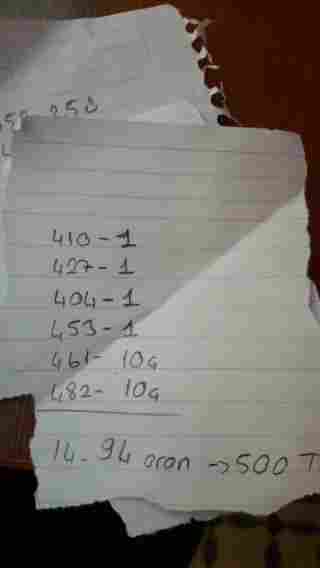 250
410-1
427-1
404-1
453-1
461- 10a
482- 10a
14.94 oran →500 T